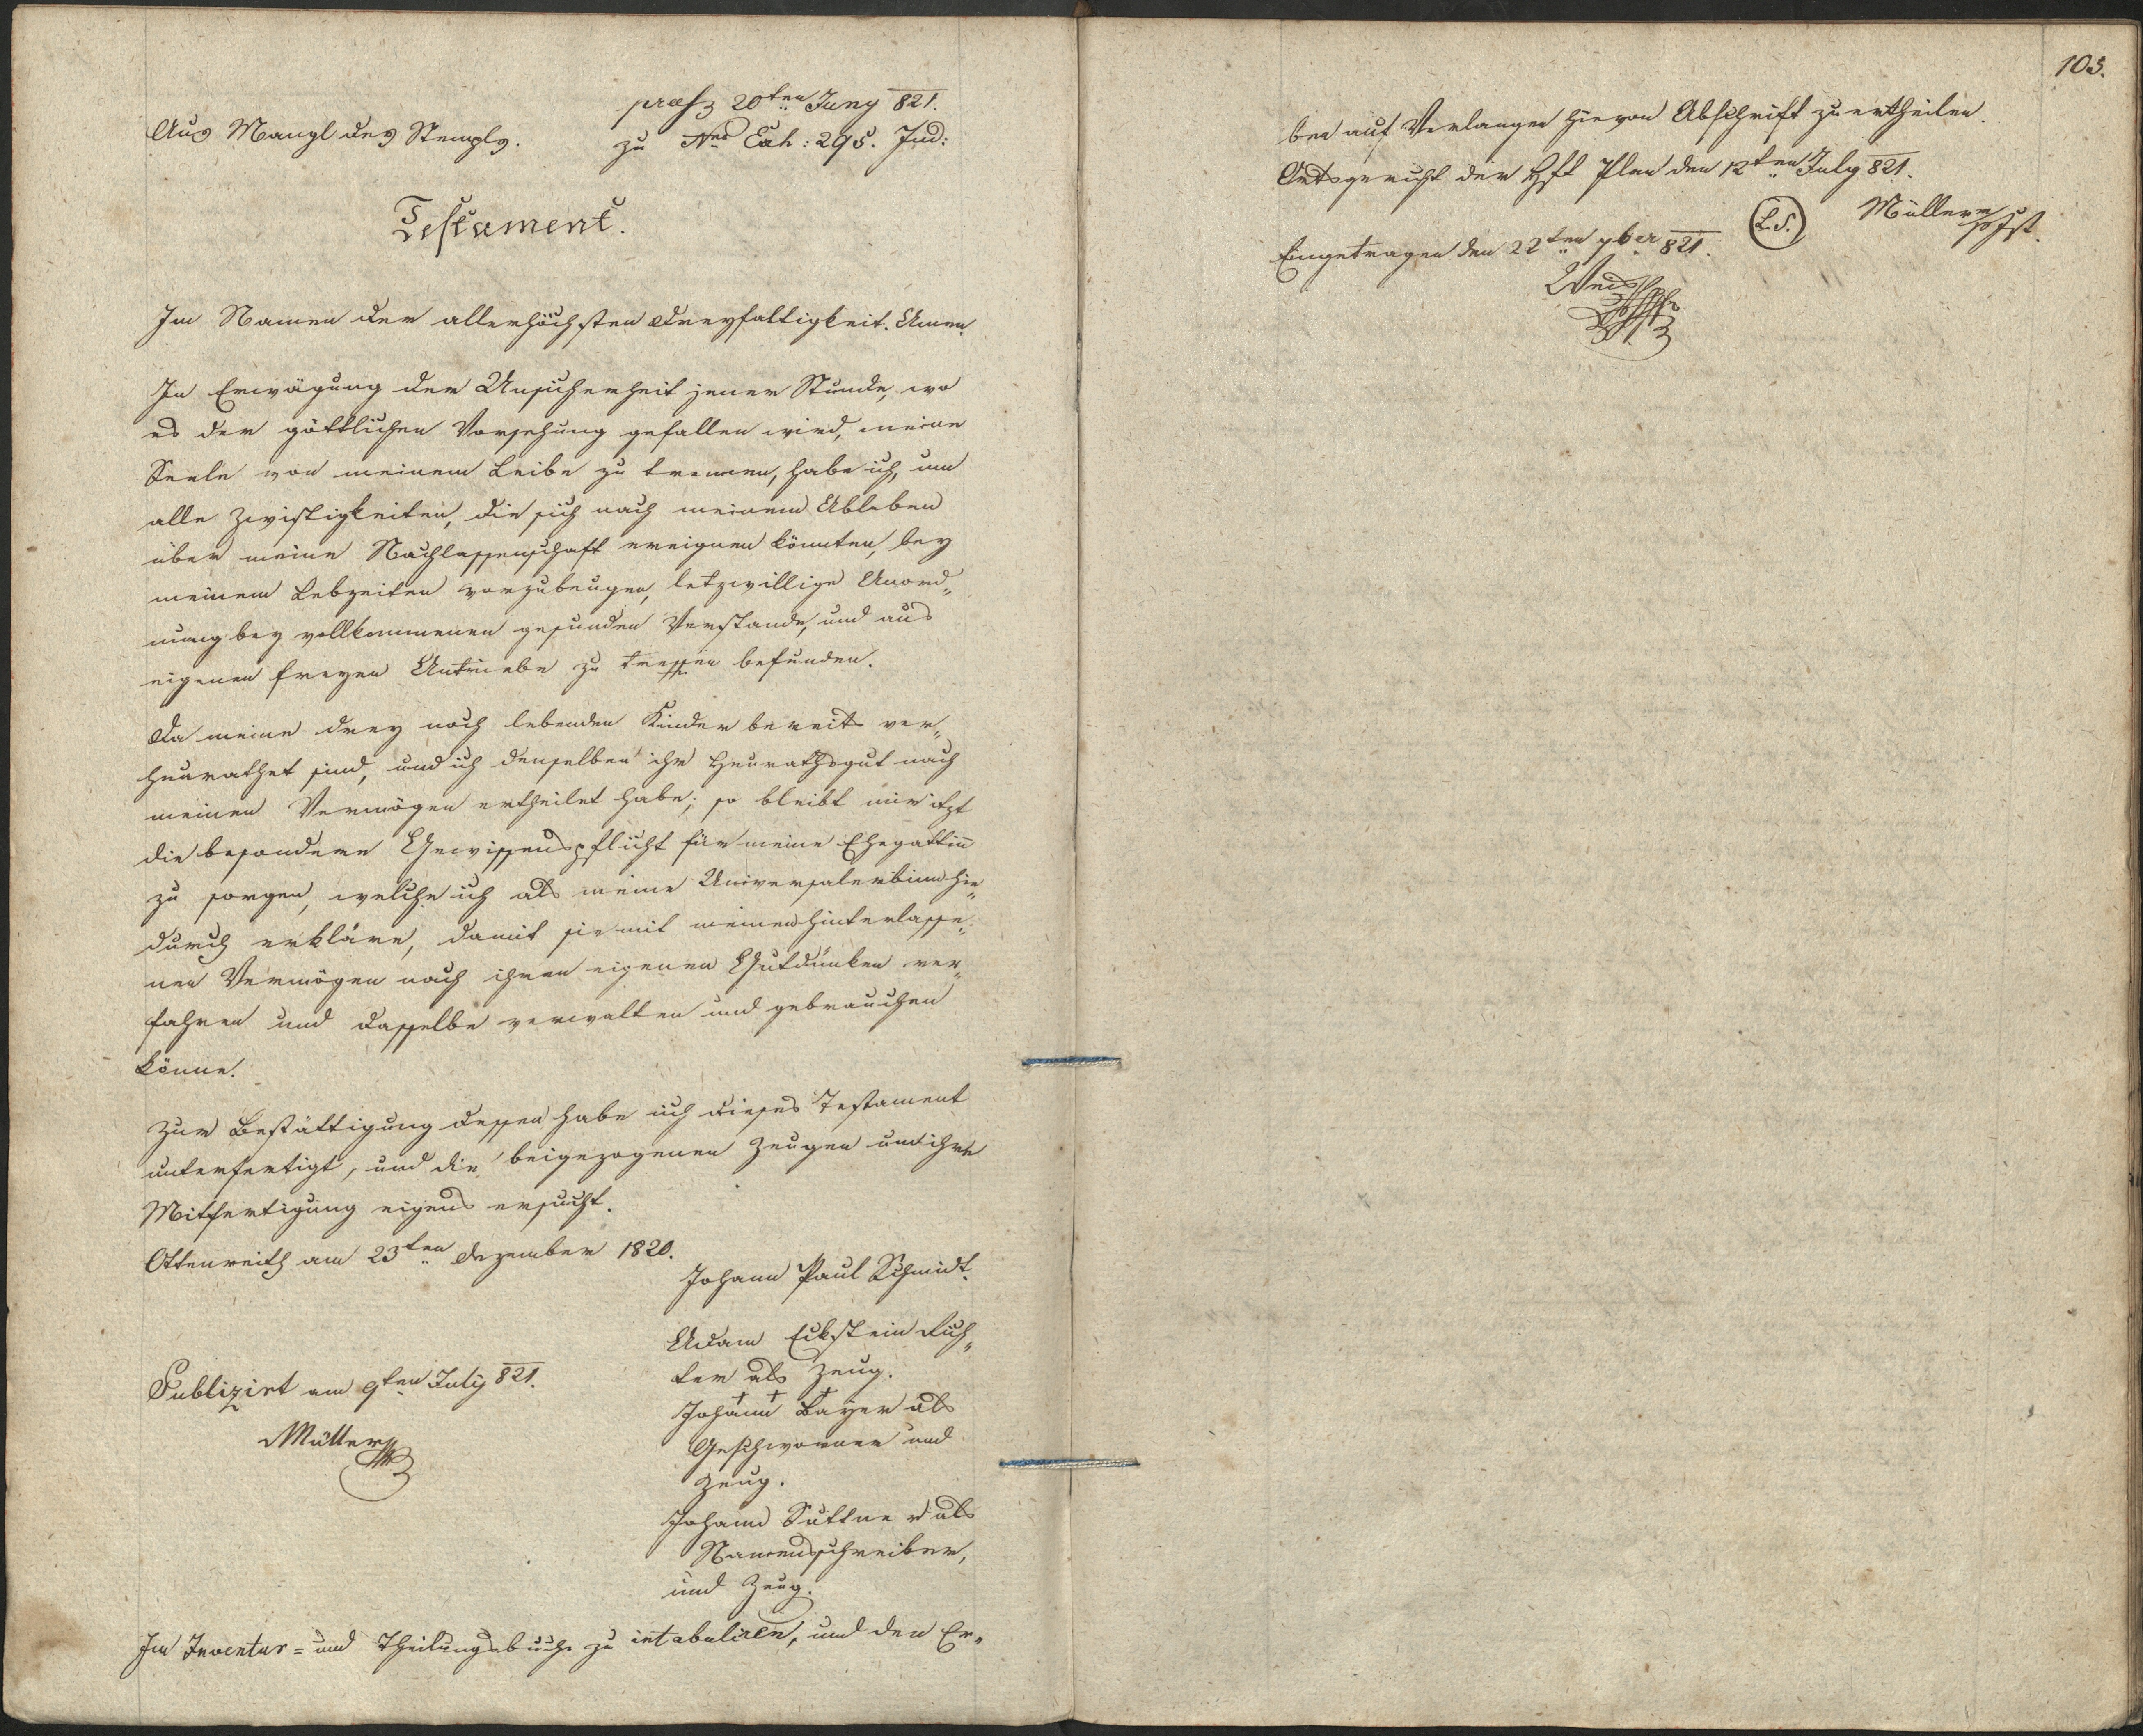 Aus Mangl des Stempls.
præs 20ten Juny 821.
zu Nro Exh: 295. Jud:
Testament.
Im Namen der allerhöchsten Dreyfaltigkeit. Amen.
In Erwägung der Unsicherheit jener Stunde, wo
es der göttlichen Vorsehung gefallen wird, meine
Seele von meinem Leibe zu trennen, habe ich, um
alle Zwistigkeiten, die sich nach meinem Ableben
über meine Nachlassenschaft ereignen könnten, bey
meinem Lebzeiten vorzubeugen, letzwillige Anord„
nung bey vollkommenen gesunden Verstande, und aus
eigenen freyen Antriebe zu treffen befunden.
Da meine drey noch lebenden Kinder bereits ver„
heurathet sind, und ich denselben ihr Heurathsgut nach
meinen Vermögen ertheilet habe; so bleibt mir itzt
die besondere Gewissenspflicht für meine Ehegattin
zu sorgen, welche ich als meine Universalerbinn hie„
durch erkläre, damit sie mit meinen hinterlasse„
nen Vermögen nach ihren eigenen Gutdünken ver„
fahren und dasselbe verwalten und gebrauchen
könne.
Zur Bestättigung dessen habe ich dieses Testament
unterfertigt, und die beigezogenen Zeugen um ihre
Mitfertigung eigens ersucht.
Ottenreith am 23ten Dezember 1820.
Johann Paul Schmidt.
Adam Eckstein Rich„
ter als Zeug.
+ + +
Johann Bayer als
Geschworner und
Zeug.
Publizirt am 9ten July 821.
Müller
Johann Suttner als
Namensschreiber,
und Zeug.
Im Inventar= und Theilungsbuche zu intabuliren, und den Er„
103.
ben auf Verlangen hievon Abschrift zu ertheilen.
Ortsgericht der Hft Plan den 12ten July 821.
L.S.
Müller Jst.
Eingetragen den 22ten 7ber 821.
Weis